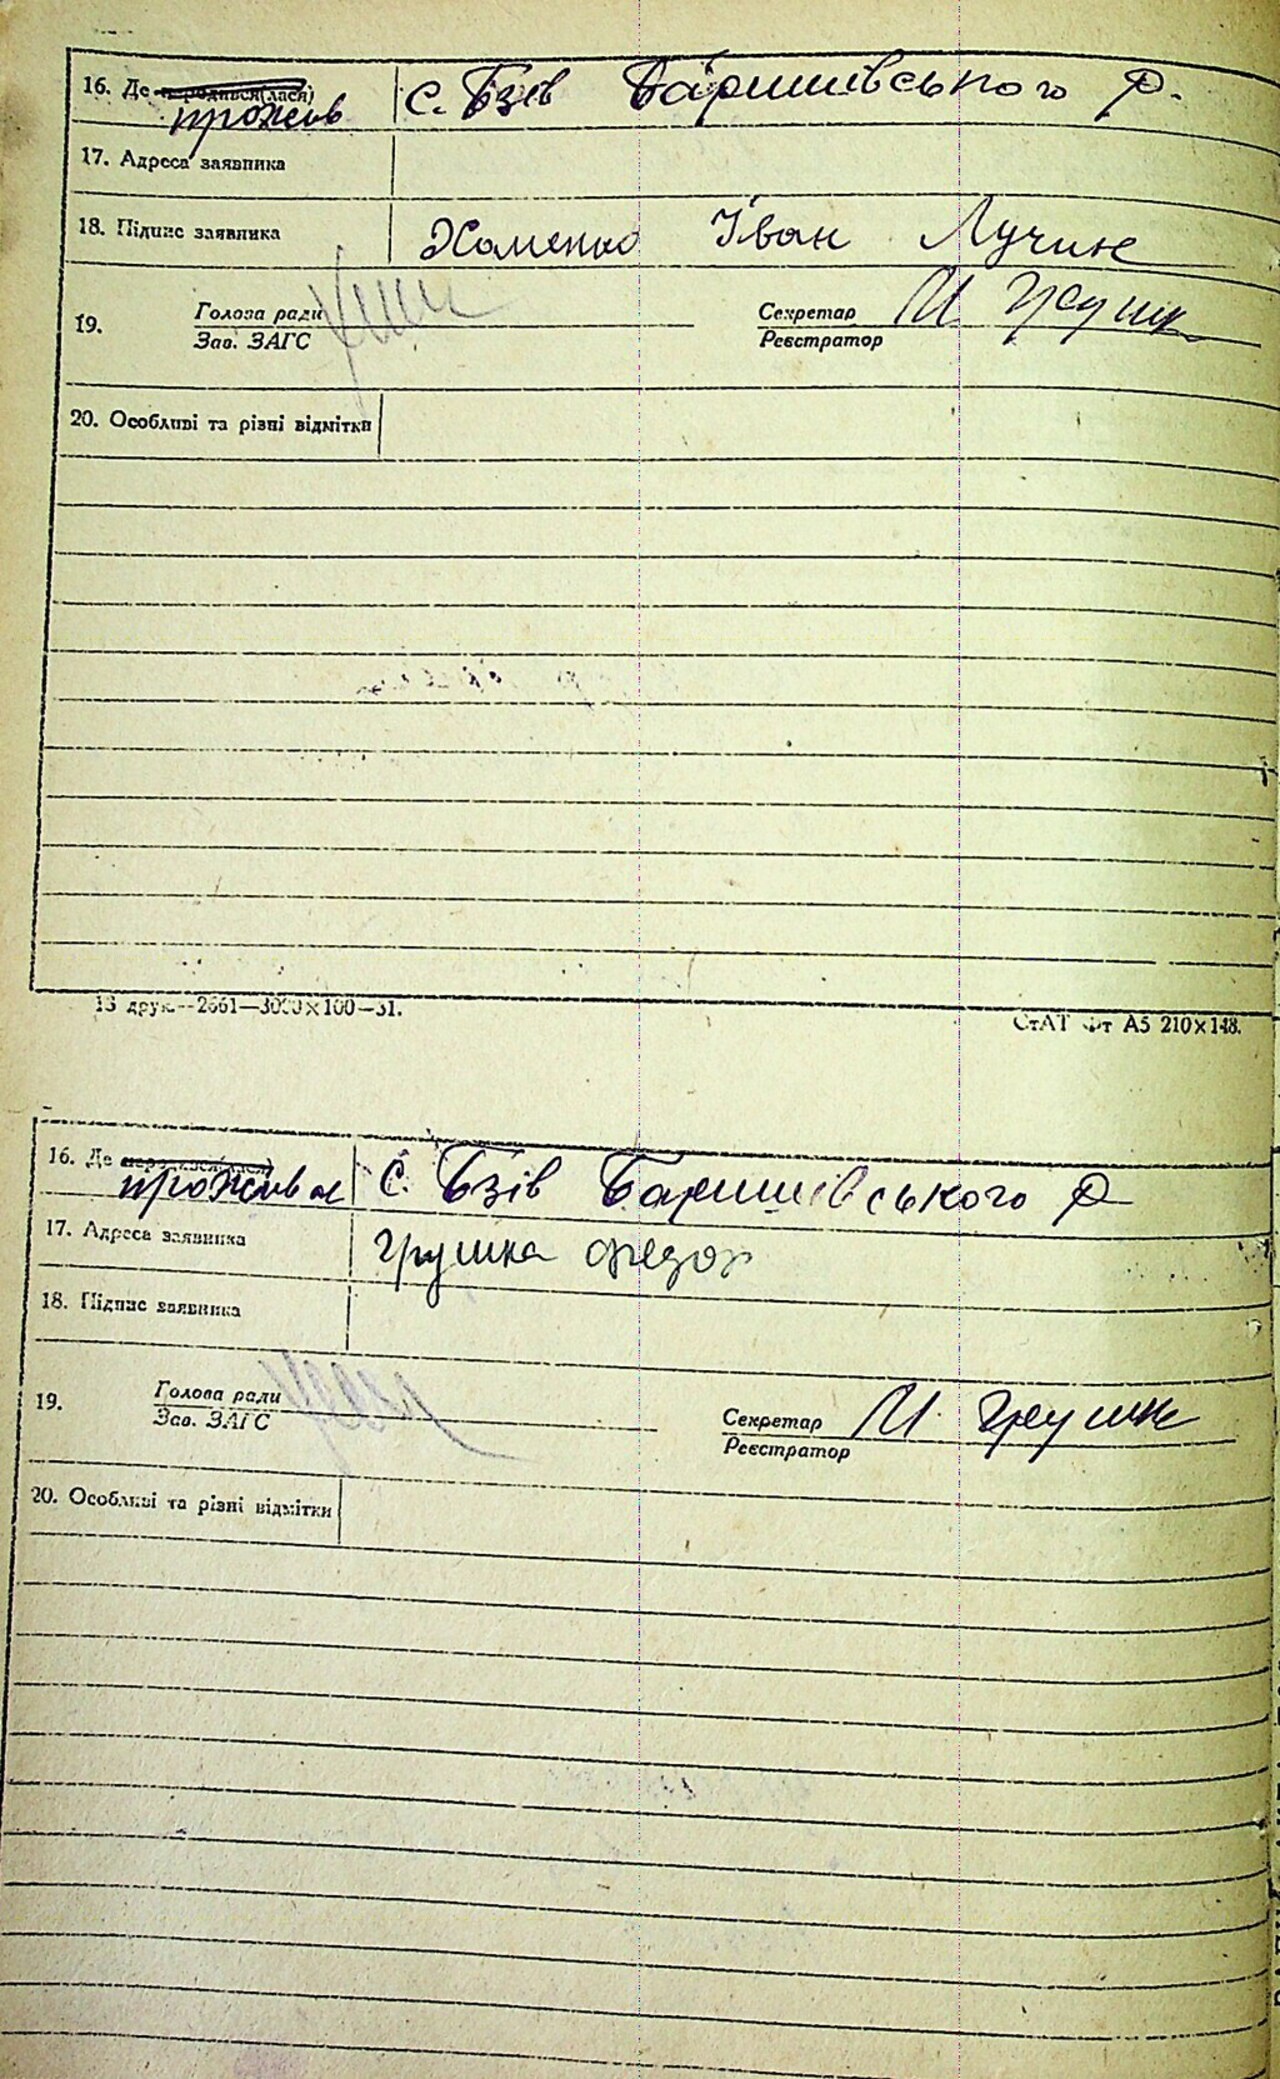 16. Де народився(лася) С. Бзів Баришівського Р.
прожив
17. Адреса заявника
18. Підпис заявника Хоменко Іван Лучин
Голова ради Секретар И Грушк
19.
Зав. ЗАГС Реєстратор
20. Особливі та різні відмітки
13 друк.—2661—3000×100—31.
СтАТ Фт А5 210×148.
16. Де С. Бзів Баришівського Р
прожив
17. Адреса заявника Грушка Федор
18. Підпис заявника
Голова ради
19. Секретар И Грушк
Зав. ЗАГС Реєстратор
20. Особливі та різні відмітки